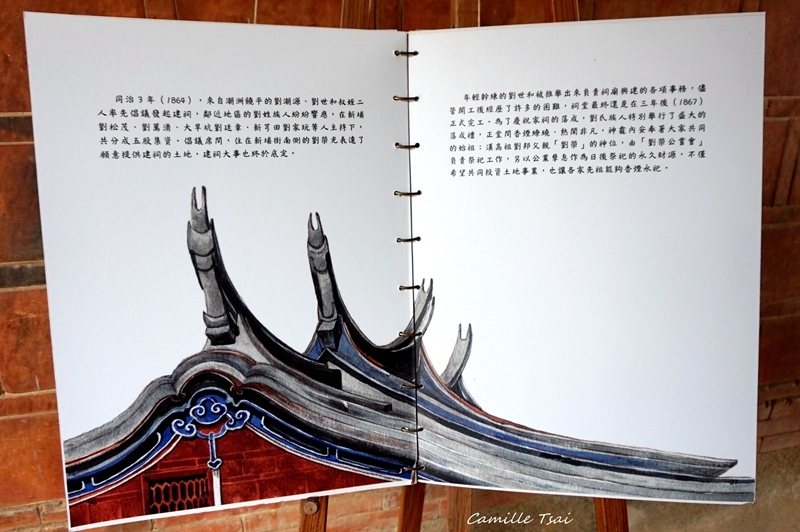 同治3年（1864），來自潮洲饒平的劉潮源、劉世和叔姪二
人率先倡議發起建祠，鄰近地區的劉姓族人紛紛響應，在新埔
劉松茂、劉萬湧、大平坑劉廷章、新芎田劉家阮等人主持下，
共分成五股集資。倡議席間，住在新埔街南側的劉榮光表達了
願意提供建祠的土地，建祠大事也終於底定。
年輕幹練的劉世和被推舉出來負責祠廟興建的各項事務，儘
管開工後經歷了許多的困難，祠堂最終還是在三年後（1867）
正式完工。為了慶祝家祠的落成，劉氏族人特別舉行了盛大的
落成禮，正堂間香煙繞繞，熱鬧非凡，神龕內安奉著大家共同
的始祖：漢高祖劉邦父親「劉榮」的神位，由「劉榮公嘗會」
負責祭祀工作，另以公業孳息作為日後祭祀的永久財源，不僅
希望共同投資土地事業，也讓各家先祖能夠香煙永祀。
Camille Tsai